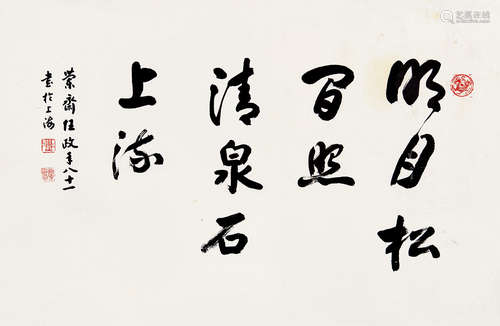 明月松
间照
清泉石
上流
兰斋任政年八十一
书于上海